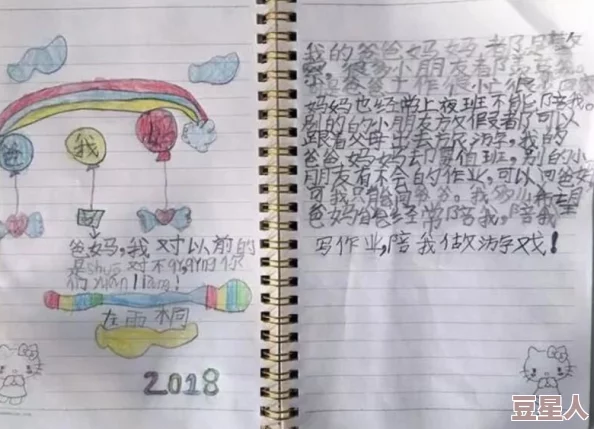 我
爸妈,我对以前的
是shuō对不
你
们yuan liang!
2018
我的爸爸妈妈都是
小朋友都
爸爸工作很忙很
妈妈也经常上夜班不能陪我。
别的的小朋友放假都可以
跟着父母出去放游学,我的
爸爸妈妈去却要值班,别的小
朋友有不会的作业,可以问爸妈,
可我只能问爷爷。我多么希望
爸妈能经常陪我,陪我
写作业,陪我做游字戏!
豆星人